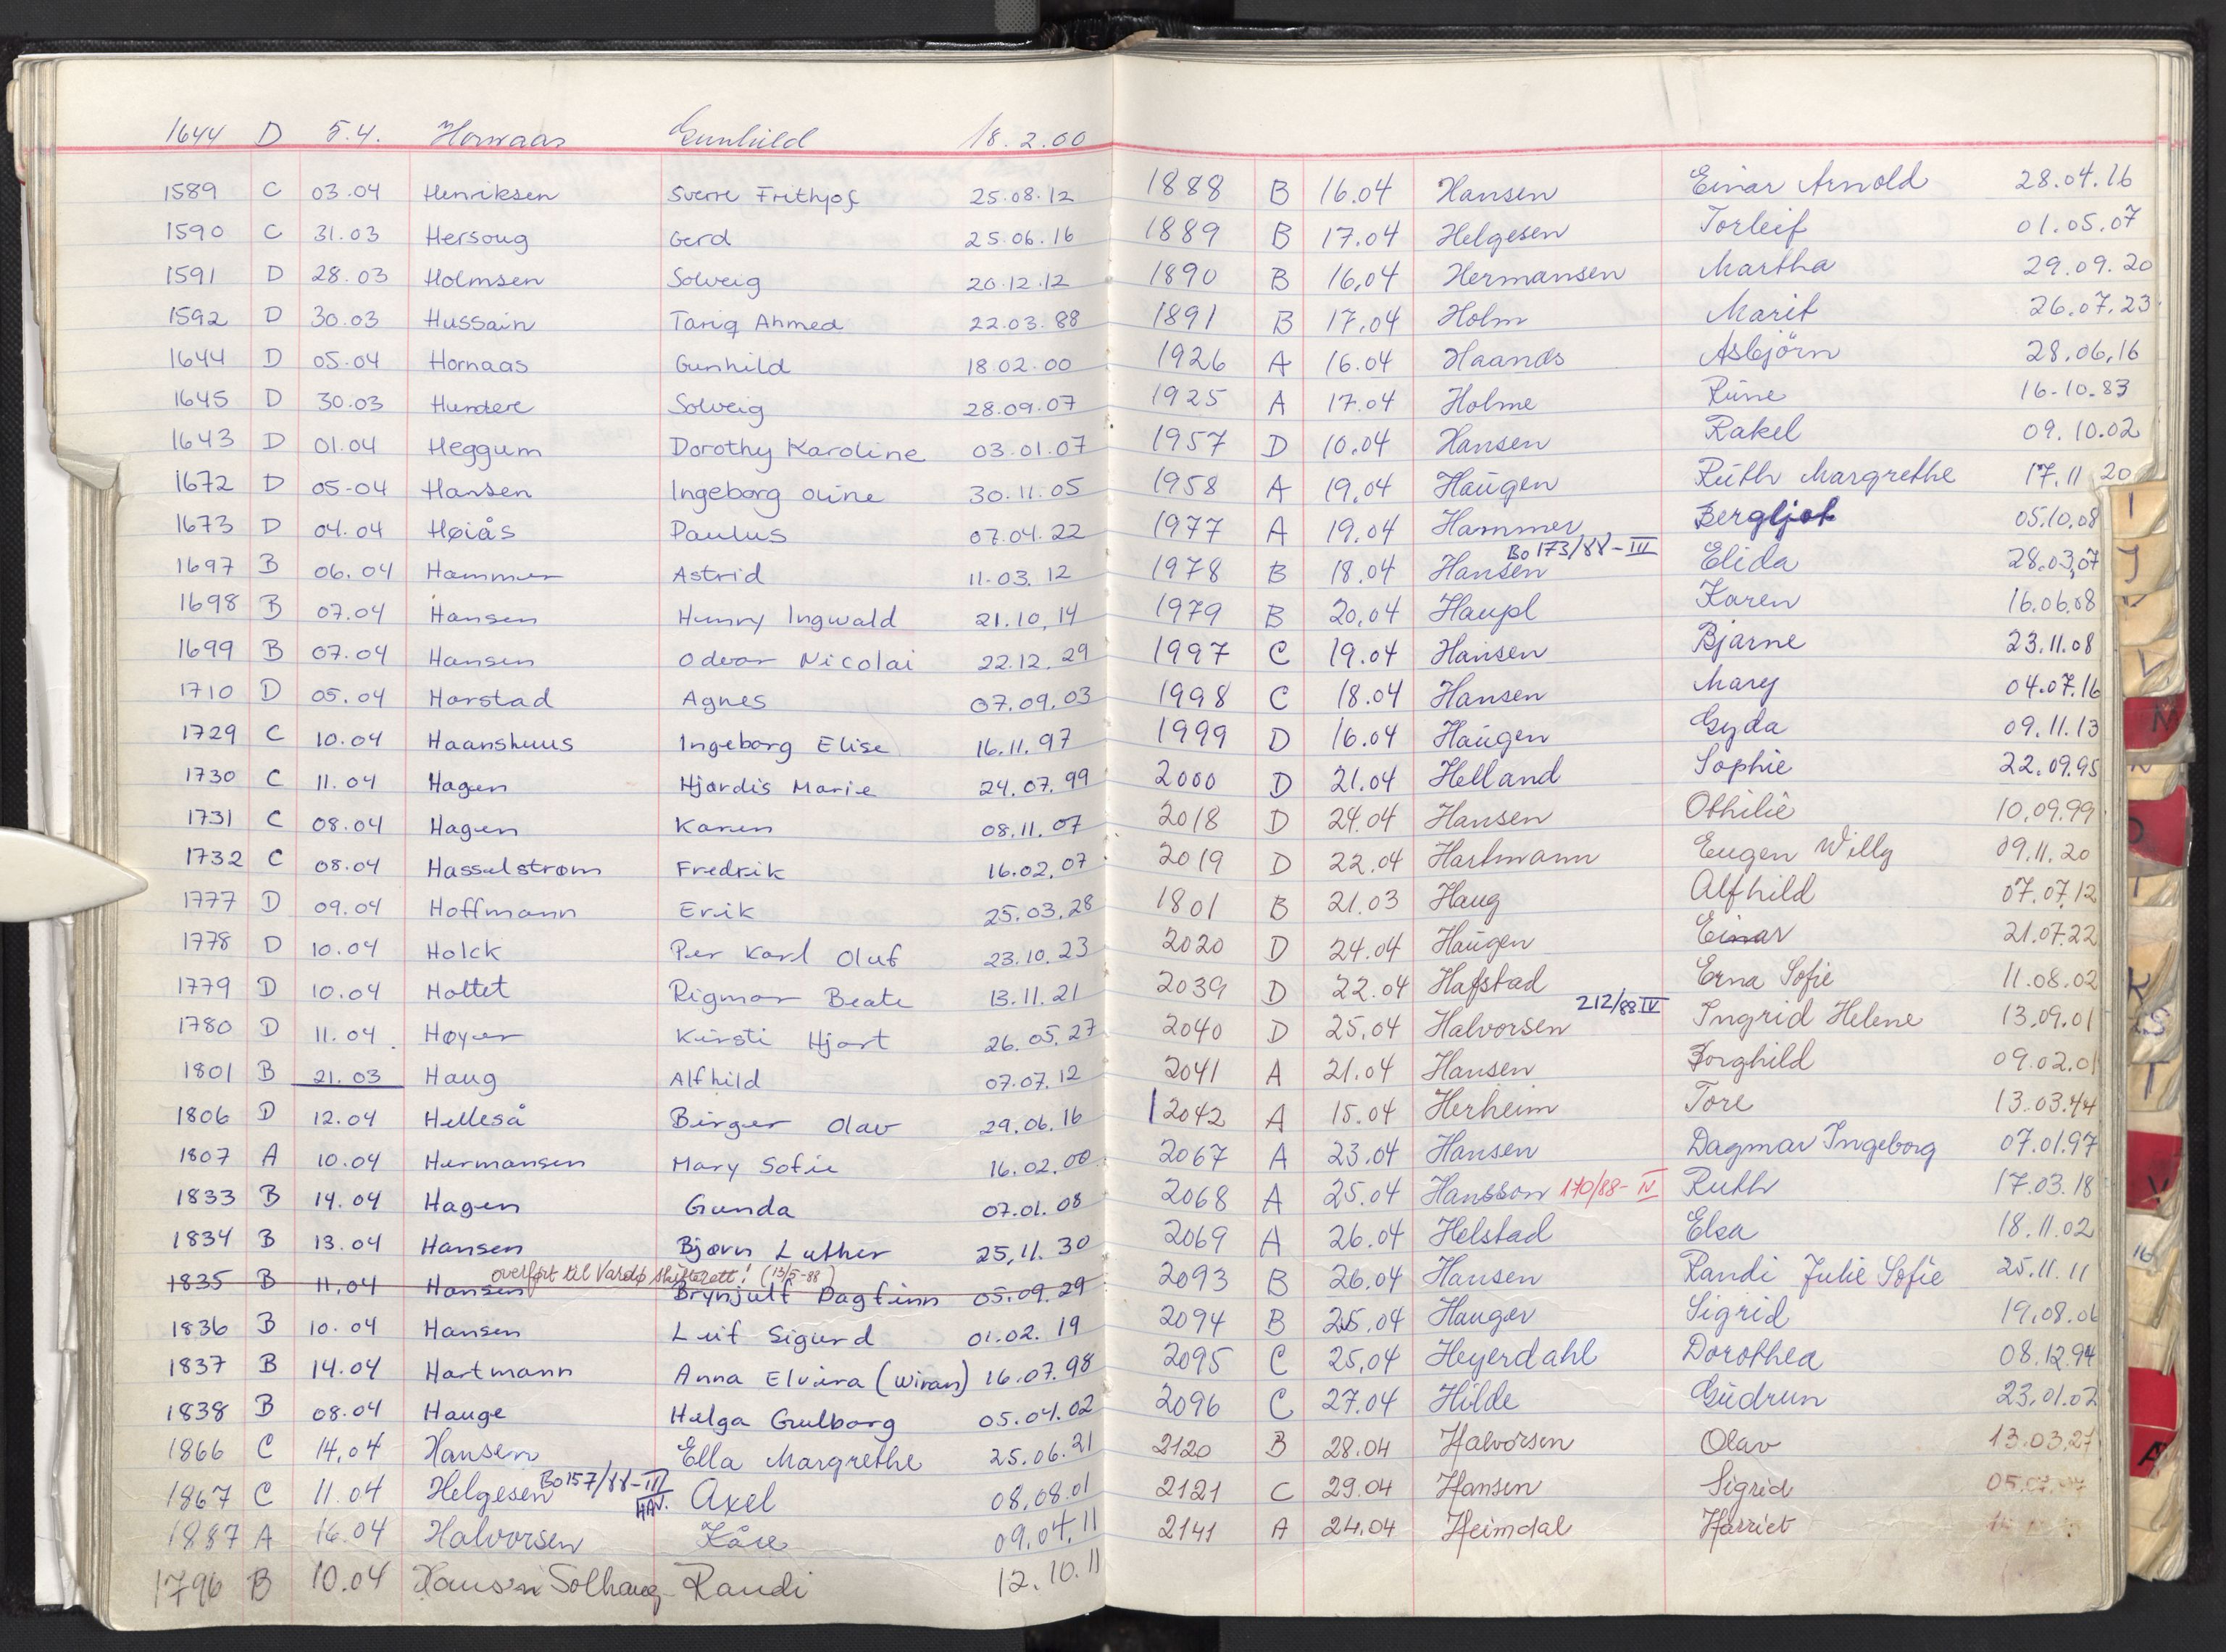 1644 D 5.4. Hornaas Gunhild 18.2.00
1589 C 03.04 Henriksen Sverre Frithjof 25.08.12
1590 C 31.03 Hersoug Gerd 25.06.16
1591 D 28.03 Holmsen Solveig 20.12.12
1592 D 30.03 Hussain Tariq Ahmed 22.03.88
1644 D 05.04 Hornaas Gunhild 18.02.00
1645 D 30.03 Hundere Solveig 28.09.07
1643 D 01.04 Heggum Dorothy Karoline 03.01.07
1672 D 05-04 Hansen Ingeborg Oline 30.11.05
1673 D 04.04 Høiås Paulus 07.04.22
1697 B 06.04 Hammer Astrid 11.03.12
1698 B 07.04 Hansen Henry Ingwald 21.10.14
1699 B 07.04 Hansen Odvar Nicolai 22.12.29
1710 D 05.04 Harstad Agnes 07.09.03
1729 C 10.04 Haanshuus Ingeborg Elise 16.11.97
1730 C 11.04 Hagen Hjørdis Marie 24.07.99
1731 C 08.04 Hagen Karen 08.11.07
1732 C 08.04 Hasselstrøm Fredrik 16.02.07
1777 D 09.04 Hoffmann Erik 25.03.28
1778 D 10.04 Holck Per Karl Oluf 23.10.23
1779 D 10.04 Holtet Rigmor Beate 13.11.21
1780 D 11.04 Høyer Kirsti Hjort 26.05.27
1801 B 21.03 Haug Alfhild 07.07.12
1806 D 12.04 Helleså Birger Olav 29.06.16
1807 A 10.04 Hermansen Mary Sofie 16.02.00
1833 B 14.04 Hagen Gunda 07.01.08
1834 B 13.04 Hansen Bjørn Luther 25.11.30
overført til Vardø skifterett! (13/5-88)
1835 B 11.04 Hansen Brynjulf Dagfinn 05.09.29
1836 B 10.04 Hansen Leif Sigurd 01.02.19
1837 B 14.04 Hartmann Anna Elvira (Wiran) 16.07.98
1838 B 08.04 Hauge Helga Gulborg 05.04.02
1866 C 14.04 Hansen Ella Margrethe 25.06.21
1867 C 11.04 Helgesen Bo 157/88-III HAV. Axel 08.08.01
1887 A 16.04 Halvorsen Kåre 09.04.11
1796 B 10.04 Hansen Solhaug Randi 12.10.11
1888 B 16.04 Hansen Einar Arnold 28.04.16
1889 B 17.04 Helgesen Torleif 01.05.07
1890 B 16.04 Hermansen Martha 29.09.20
1891 B 17.04 Holm Marit 26.07.23
1926 A 16.04 Haands Asbjörn 28.06.16
1925 A 17.04 Holme Rune 16-10.83
1957 D 10.04 Hansen Rakel 09.10.02
1958 A 19.04 Haugen Ruth Margrethe 17.11 20
1977 A 19.04 Hammer Bergljot 05.10.08
Bo 173/88-III
1978 B 18.04 Hansen Elida 28.03.07
1979 B 20.04 Haupl Karen 16.06.08
1997 C 19.04 Hansen Bjarne 23.11.08
1998 C 18.04 Hansen Mary 04.07.16
1999 D 16.04 Haugen Gyda 09.11.13
2000 D 21.04 Helland Sophie 22.09.95
2018 D 24.04 Hansen Othilie 10.09.99
2019 D 22.04 Hartmann Eugen Willy 09.11.20
1801 B 21.03 Haug Alfhild 07.07.12
2020 D 24.04 Haugen Einar 21.07.22
2039 D 22.04 Hafstad Erna Sofie 11.08.02
212/88 IV
2040 D 25.04 Halvorsen Ingrid Helene 13.09.01
2041 A 21.04 Hansen Borghild 09.02.01
2042 A 15.04 Herheim Tore 13.03.44
2067 A 23.04 Hansen Dagmar Ingeborg 07.01.97
2068 A 25.04 Hansson 170/88-IV Ruth 17.03.18
2069 A 26.04 Helstad Elsa 18.11.02
2093 B 26.04 Hansen Randi Julie Sofie 25.11.11
2094 B 25.04 Hauger Sigrid 19.08.06
2095 C 25.04 Heyerdahl Dorothea 08.12.94
2096 C 27.04 Hilde Gudrun 23.01.02
2120 B 28.04 Halvorsen Olav 13.03.27
2121 C 29.04 Hansen Sigrid
2141 A 24.04 Heimdal Harriet
I
J
M
K
S
T
V